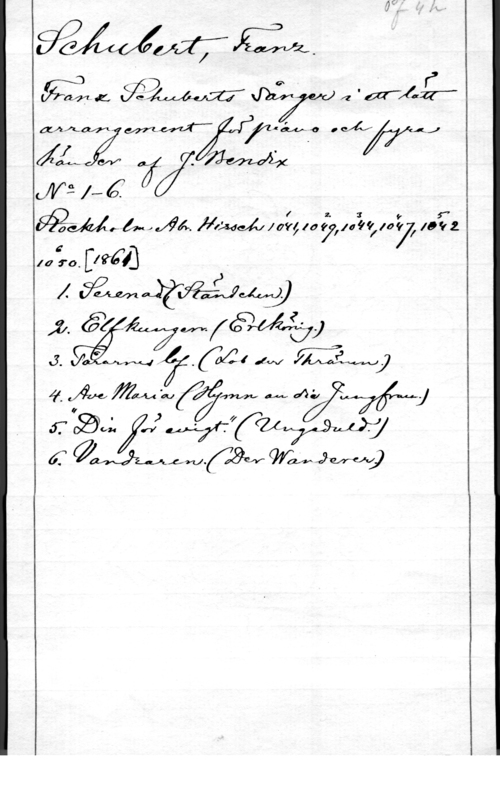 Schubert, Franz.
Franz Schuberts Sånger i ett lätt
arrangement för piano och fyra
händer af J. Bendix
Nº 1-6.
Stockholm. Abr. Hirsch
[1861]
1. Serenad (Ständchen)
2. Elfkungen. (Erlkönig.)
3. Tårarnes lof. (Lob der Thränen.)
4. Ave Maria (Hymn an die Jungfrau.)
5. "Din för evigt." (Ungeduld.)
6. Vandraren. (Der Wanderer)